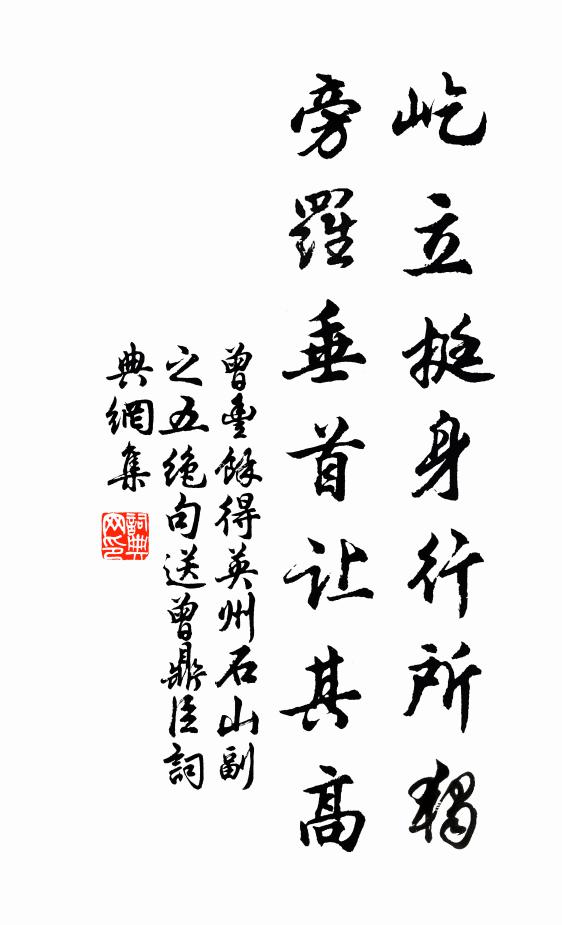 屹立挺身行所獨
旁羅垂首让其高
曾豊餘得英州石山副
之五绝句送曾鼎臣詞
典網集
詞典
网印